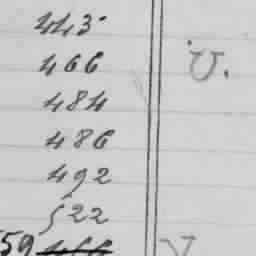 443
466 U.
484
486
492
522
59 466 V